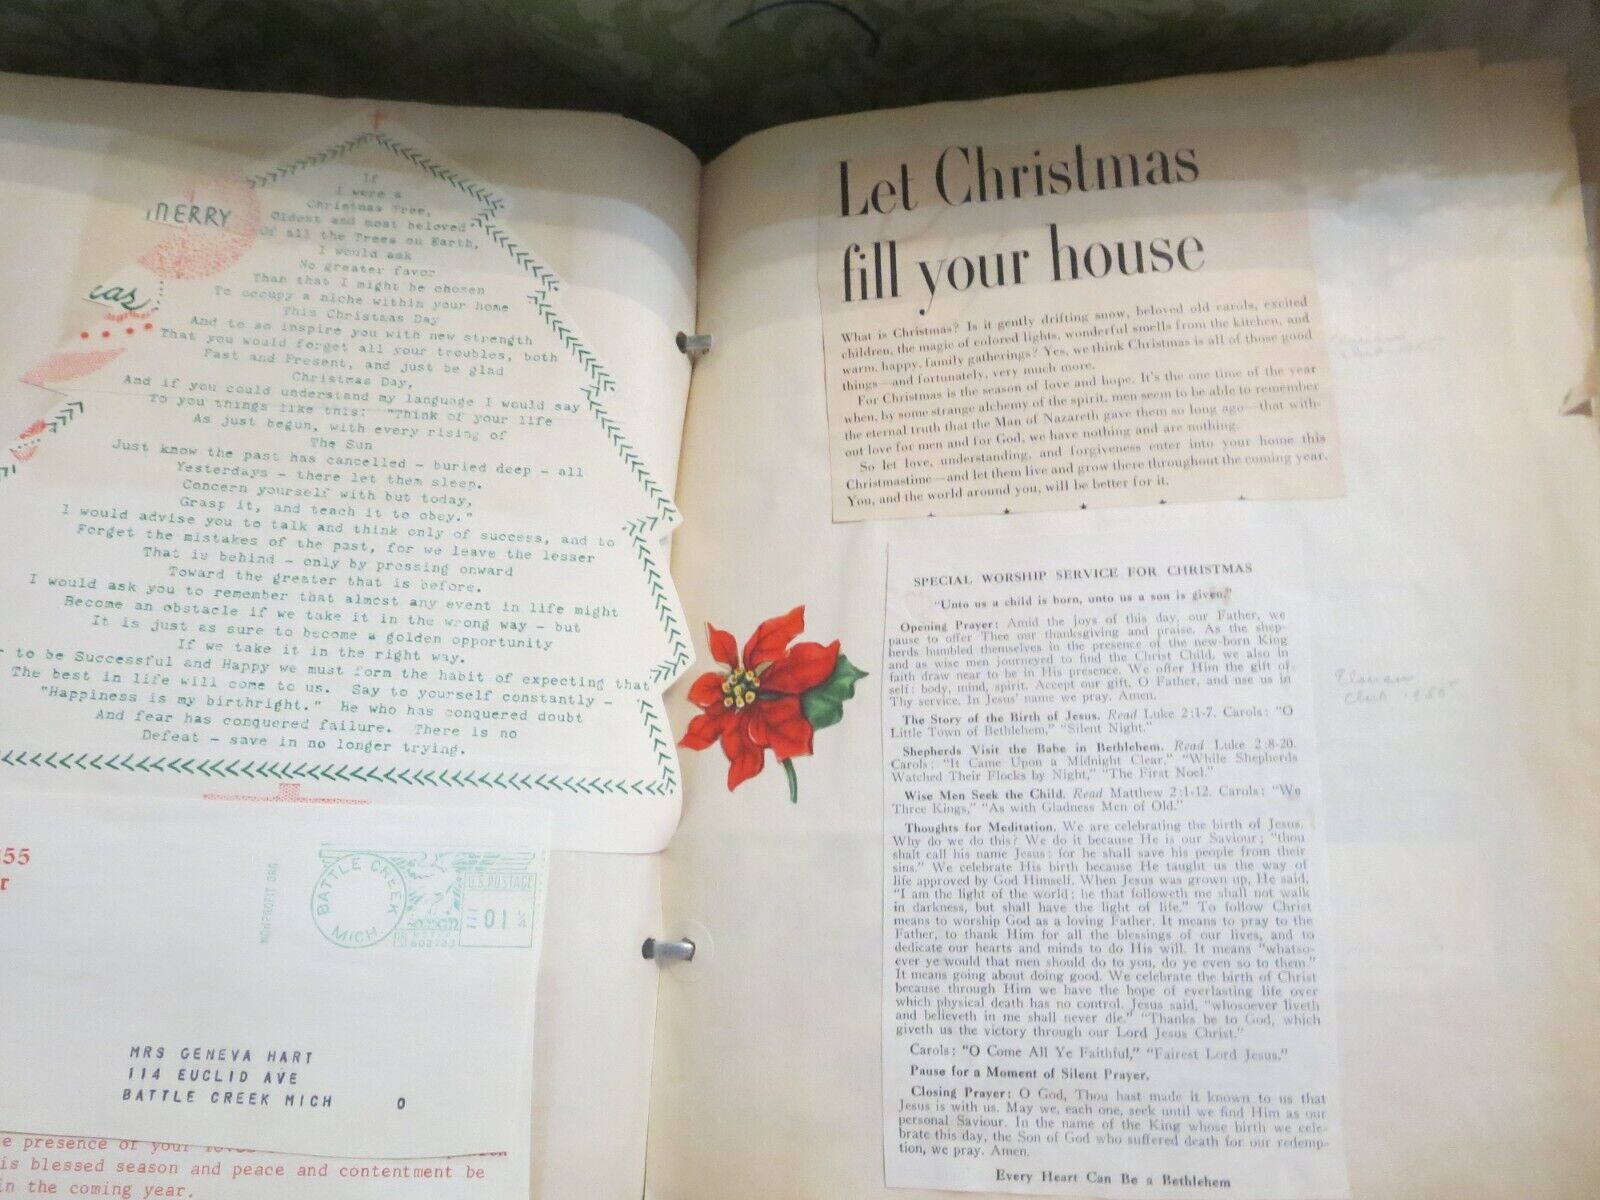 MERRY
If
I were a
Christmas Tree,
Oldest and most beloved
Of all the Trees on Earth,
I would ask
No greater favor
Than that I might be chosen
To occupy a niche within your home
This Christmas Day
And to so inspire you with new strength
That you would forget all your troubles, both
Past and Present, and just be glad
Christmas Day,
And if you could understand my language I would say
To you things like this: "Think of your life
As just begun, with every rising of
The Sun
Just know the past has cancelled - buried deep - all
Yesterdays - there let them sleep.
Concern yourself with but today,
Grasp it, and teach it to obey."
I would advise you to talk and think only of success, and to
Forget the mistakes of the past, for we leave the lesser
That is behind - only by pressing onward
Toward the greater that is before.
I would ask you to remember that almost any event in life might
Become an obstacle if we take it in the wrong way - but
It is just as sure to become a golden opportunity
If we take it in the right way.
to be Successful and Happy we must form the habit of expecting that
The best in life will come to us. Say to yourself constantly -
"Happiness is my birthright." He who has conquered doubt
And fear has conquered failure. There is no
Defeat - save in no longer trying.
55
NONPROFIT ORG
BATTLE CREEK
MICH.
U.S. POSTAGE
01
MRS GENEVA HART
114 EUCLID AVE
BATTLE CREEK MICH 0
presence of your
is blessed season and peace and contentment be
in the coming year.
Let Christmas
fill your house
What is Christmas? Is it gently drifting snow, beloved old carols, excited
children, the magic of colored lights, wonderful smells from the kitchen, and
warm, happy, family gatherings? Yes, we think Christmas is all of those good
things—and fortunately, very much more.
For Christmas is the season of love and hope. It's the one time of the year
when, by some strange alchemy of the spirit, men seem to be able to remember
the eternal truth that the Man of Nazareth gave them so long ago—that with-
out love for men and for God, we have nothing and are nothing.
So let love, understanding, and forgiveness enter into your home this
Christmastime—and let them live and grow there throughout the coming year.
You, and the world around you, will be better for it.
SPECIAL WORSHIP SERVICE FOR CHRISTMAS
"Unto us a child is born, unto us a son is given."
Opening Prayer: Amid the joys of this day, our Father, we
pause to offer Thee our thanksgiving and praise. As the shep-
herds humbled themselves in the presence of the new-born King
and as wise men journeyed to find the Christ Child, we also in
faith draw near to be in His presence. We offer Him the gift of
self: body, mind, spirit. Accept our gift, O Father, and use us in
Thy service. In Jesus' name we pray. Amen.
The Story of the Birth of Jesus. Read Luke 2:1-7. Carols: "O
Little Town of Bethlehem," "Silent Night."
Shepherds Visit the Babe in Bethlehem. Read Luke 2:8-20.
Carols: "It Came Upon a Midnight Clear," "While Shepherds
Watched Their Flocks by Night," "The First Noel."
Wise Men Seek the Child. Read Matthew 2:1-12. Carols: "We
Three Kings," "As with Gladness Men of Old."
Thoughts for Meditation. We are celebrating the birth of Jesus.
Why do we do this? We do it because He is our Saviour; "thou
shalt call his name Jesus: for he shall save his people from their
sins." We celebrate His birth because He taught us the way of
life approved by God Himself. When Jesus was grown up, He said,
"I am the light of the world: he that followeth me shall not walk
in darkness, but shall have the light of life." To follow Christ
means to worship God as a loving Father. It means to pray to the
Father, to thank Him for all the blessings of our lives, and to
dedicate our hearts and minds to do His will. It means "whatso-
ever ye would that men should do to you, do ye even so to them."
It means going about doing good. We celebrate the birth of Christ
because through Him we have the hope of everlasting life over
which physical death has no control. Jesus said, "whosoever liveth
and believeth in me shall never die." "Thanks be to God, which
giveth us the victory through our Lord Jesus Christ."
Carols: "O Come All Ye Faithful," "Fairest Lord Jesus."
Pause for a Moment of Silent Prayer.
Closing Prayer: O God, Thou hast made it known to us that
Jesus is with us. May we, each one, seek until we find Him as our
personal Saviour. In the name of the King whose birth we cele-
brate this day, the Son of God who suffered death for our redemp-
tion, we pray. Amen.
Every Heart Can Be a Bethlehem
Club 1955